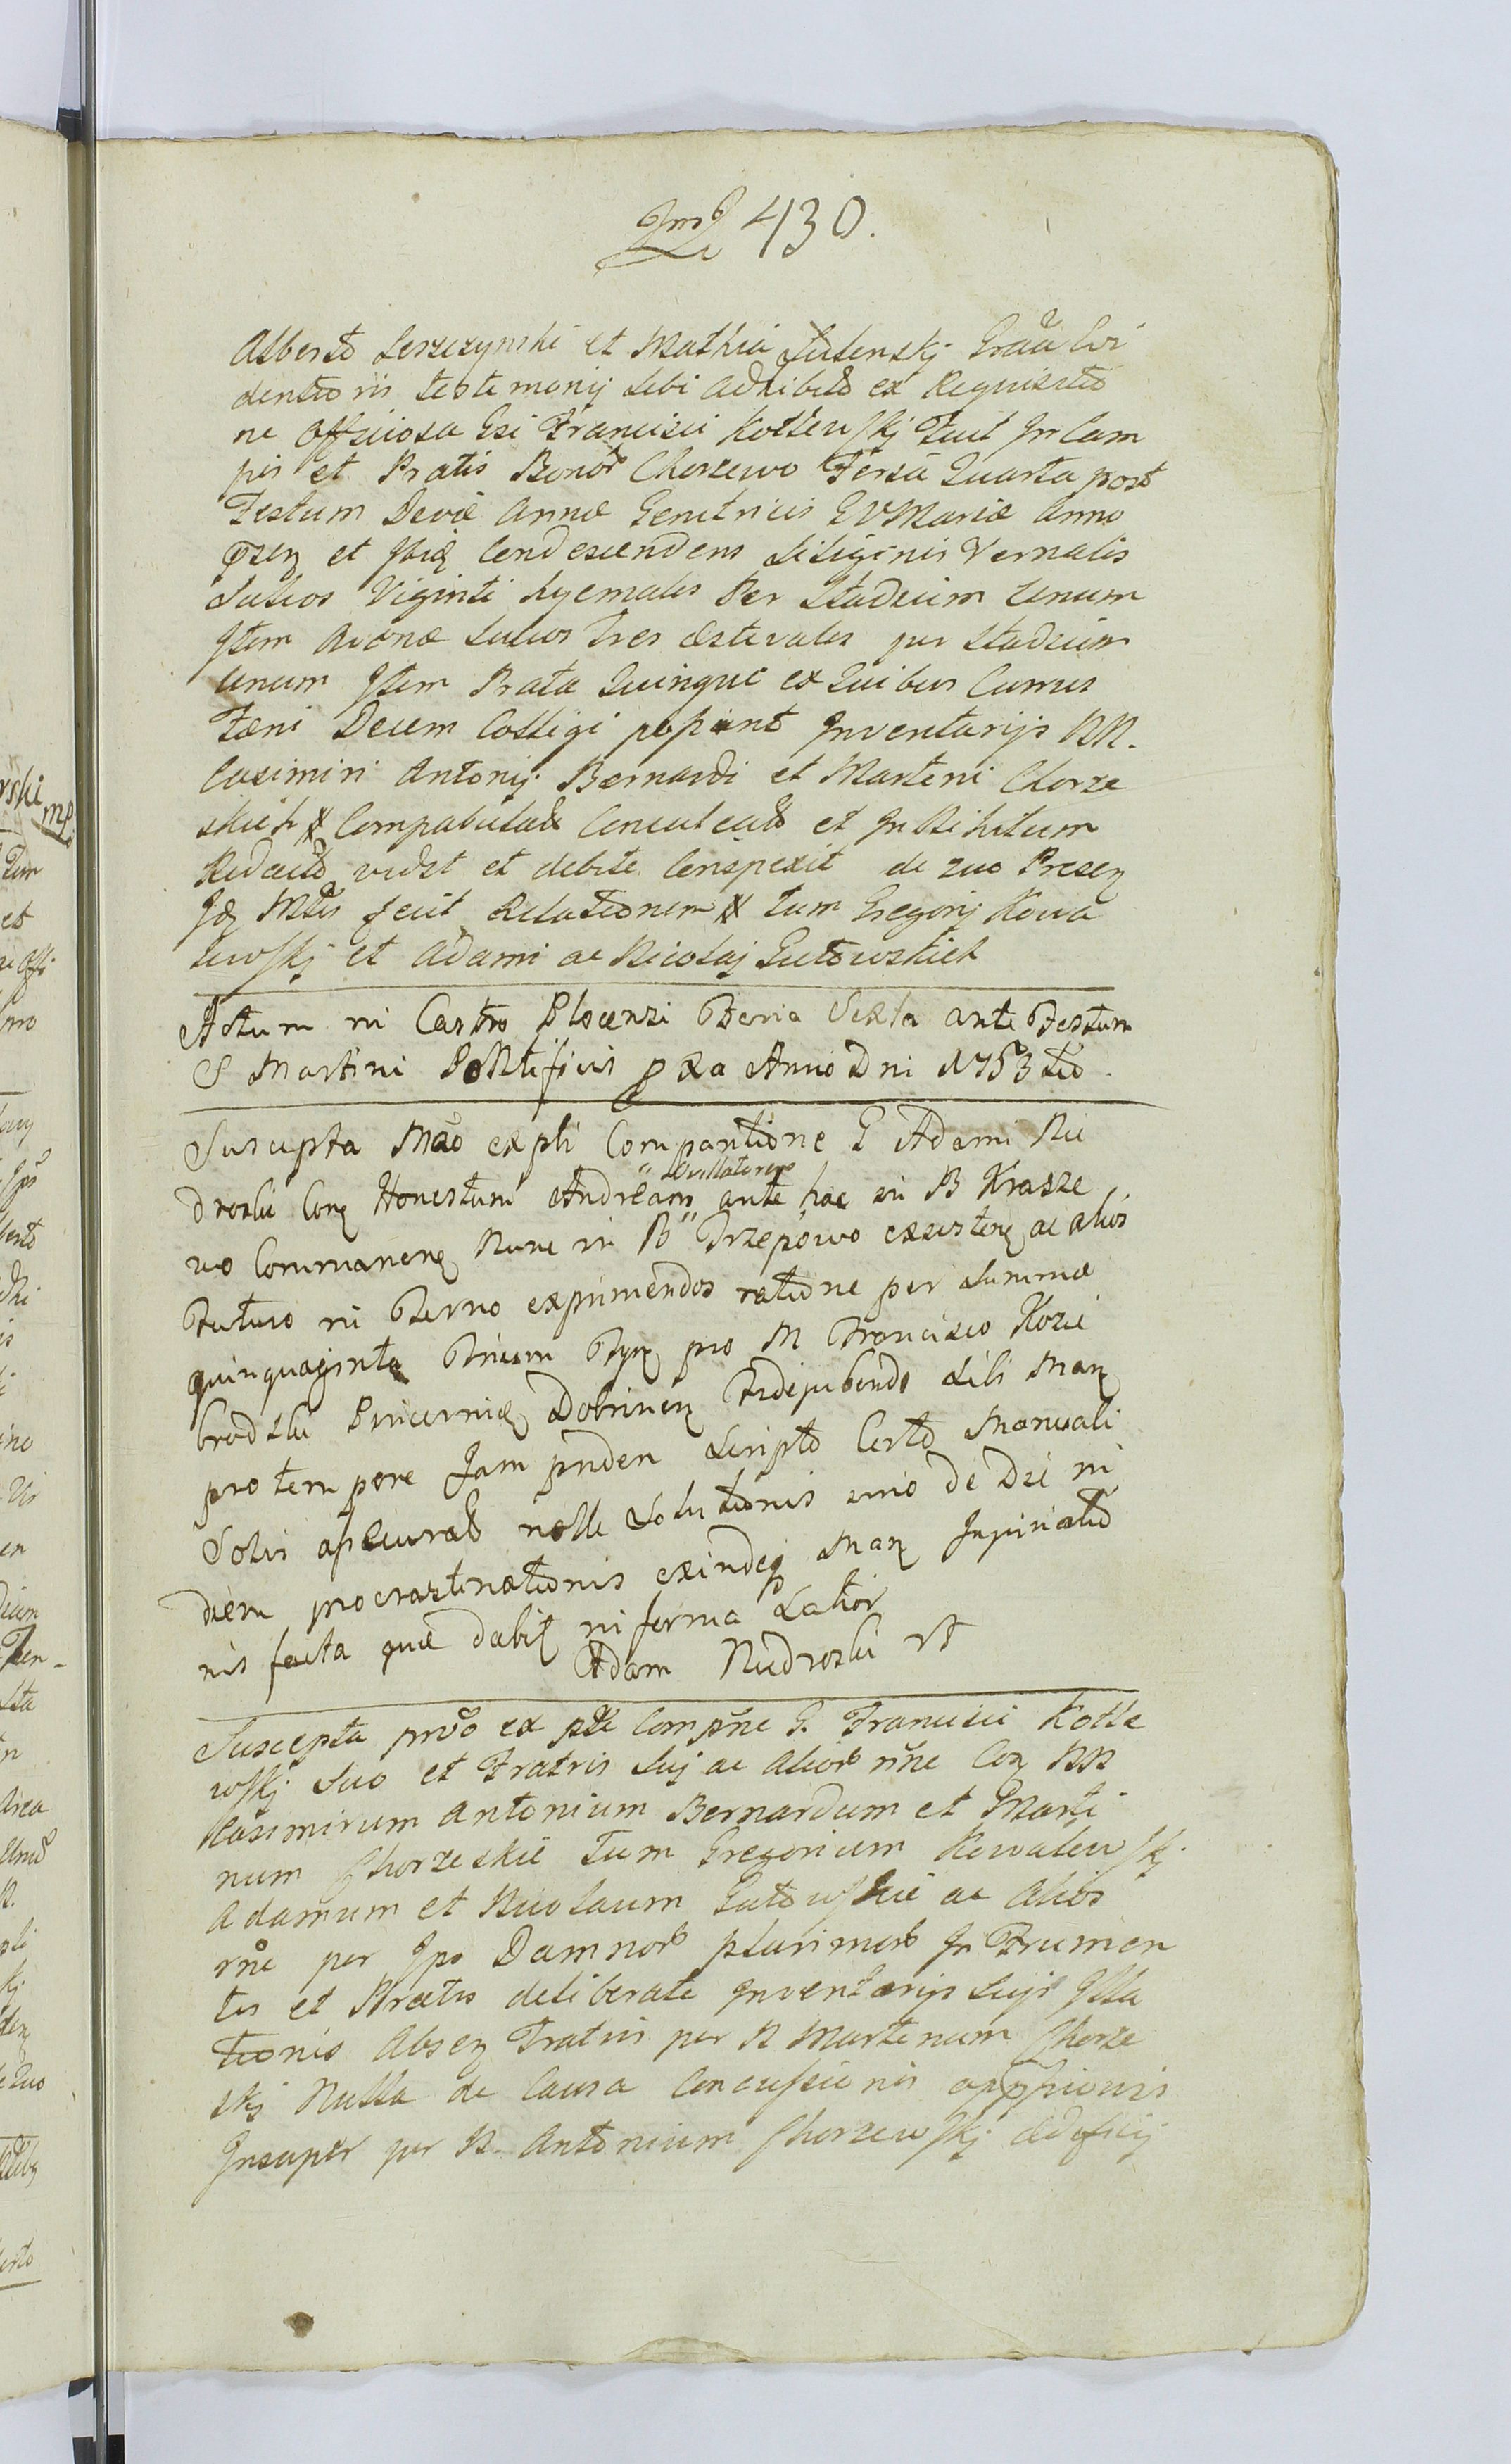 430.
Alberto Leszczynski et Mathia Lutenskj Graã Evi
dentioris testemonij sibi Adhibito ex Requisitio
ne Officiosa Gsi Francisci Kotlewskj Fuit In Cam
pis et Pratis Bonor Chorzewo Feria Quarta post
Festum Devæ Annæ Genitricis GVMariæ Anno
prsen et Ibiq Condescendens Siliginis Vernalis
Sulcos Viginti hyemales Per Stadium Unum
Item Avenæ Sulcos Tres Æstivales per Stadium
Unum Item Prata Quinque ex Quibus Currus
Fæni Decem Colligi possunt Inventarijs NN.
Casimiri Antonij Bernardi et Marteni Chorze
skich Compabulata Conculcato et In Nihilum
Redacto vidit et debite Conspexit de quo Presen
Idq Mtis fecit Relationem tum Gregorij Kowa
lewskj et Adami ac Nicolaj Gutowskich
Actum in Castro Plocensi Feria Sexta ante Festum
S Martini Pontificis pxa Anno Dni 1753 tio.
Suscepta Mão ex pti Comparitione G Adami Nie
droski Con Honestum Andream Ovillatorem ante hac in B Krasze
wo Commanen Nunc in B Trzepowo existen ac alios
Futuro in Termo exprimendos ratione per Summæ
quinquaginta Trium Tyn pro M Francisco Kozie
brodzki Pincerniæ Dobrinen Fidejubendo Sibi Man
pro tempore Jam priden Scripto Certo Manuali
Solvi assecurato nolle Solutionis imo de Die in
diem procrastinationis exindeq Man Impiriatio
nis facta que dabit in forma Latior
Adam Niedroski
Suscepta mão ex pte Compñe G. Francisci Kotle
wskj Suo et Fratris Suj ac Alior nñe Con NN
Kasimirum Antonium Bernardum et Marti
num Chorzeskie Tum Gregorium Kowalewskj
Adamum et Nicolaum Gutowskie ac Alios
rñe per Ips Damnor plurimor In Frumen
tis et Pratis deliberate Inventarijs Suijs Illa
tionis Absen Fratris per N Martenum Chorze
skj Nulla de Causa Concussionis oppsionis
Insuper per N. Antonium Chorzewskj Ædificij